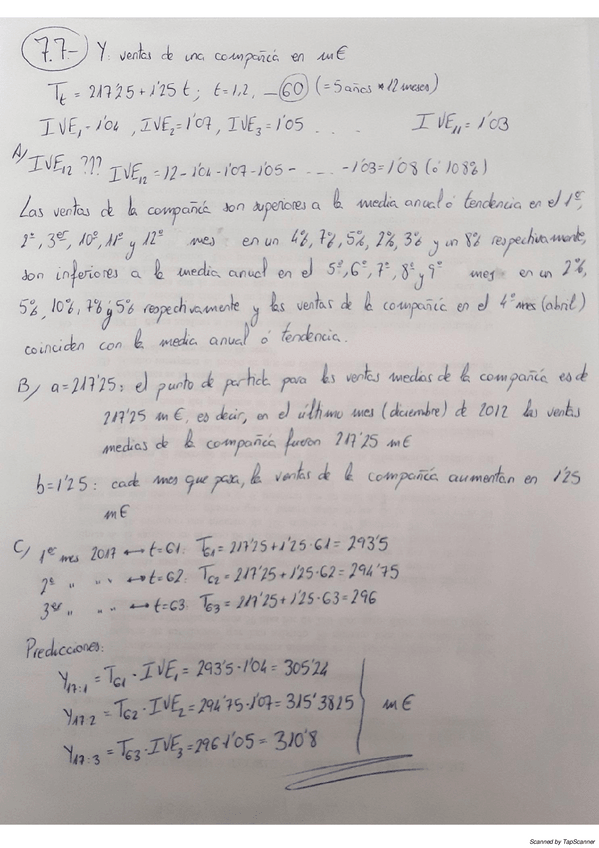 7.7- Y: ventas de una compañía en m€
Tt = 217'25 + 1'25 t ; t=1,2, ... 60 (= 5 años * 12 meses)
IVE1 = 1'04 , IVE2 = 1'07 , IVE3 = 1'05 . . . IVE11 = 1'03
A) IVE12 ??? IVE12 = 12 - 1'04 - 1'07 - 1'05 - . . . . - 1'03 = 1'08 (ó 108%)
Las ventas de la compañía son superiores a la media anual ó tendencia en el 1er,
2º, 3er, 10º, 11º y 12º mes en un 4%, 7%, 5%, 2%, 3% y un 8% respectivamente,
son inferiores a la media anual en el 5º, 6º, 7º, 8º y 9º mes en un 2%,
5%, 10%, 7% y 5% respectivamente y las ventas de la compañía en el 4º mes (abril)
coinciden con la media anual ó tendencia.
B) a = 217'25: el punto de partida para las ventas medias de la compañía es de
217'25 m€, es decir, en el último mes (diciembre) de 2012 las ventas
medias de la compañía fueron 217'25 m€
b = 1'25: cada mes que pasa, la ventas de la compañía aumentan en 1'25
m€
C) 1er mes 2017 ↔ t=61: T61 = 217'25 + 1'25·61 = 293'5
2º " " " ↔ t=62: T62 = 217'25 + 1'25·62 = 294'75
3er " " " ↔ t=63: T63 = 217'25 + 1'25·63 = 296
Predicciones:
Y17:1 = T61 · IVE1 = 293'5 · 1'04 = 305'24
Y17:2 = T62 · IVE2 = 294'75 · 1'07 = 315'3825 m€
Y17:3 = T63 · IVE3 = 296·1'05 = 310'8
Scanned by TapScanner